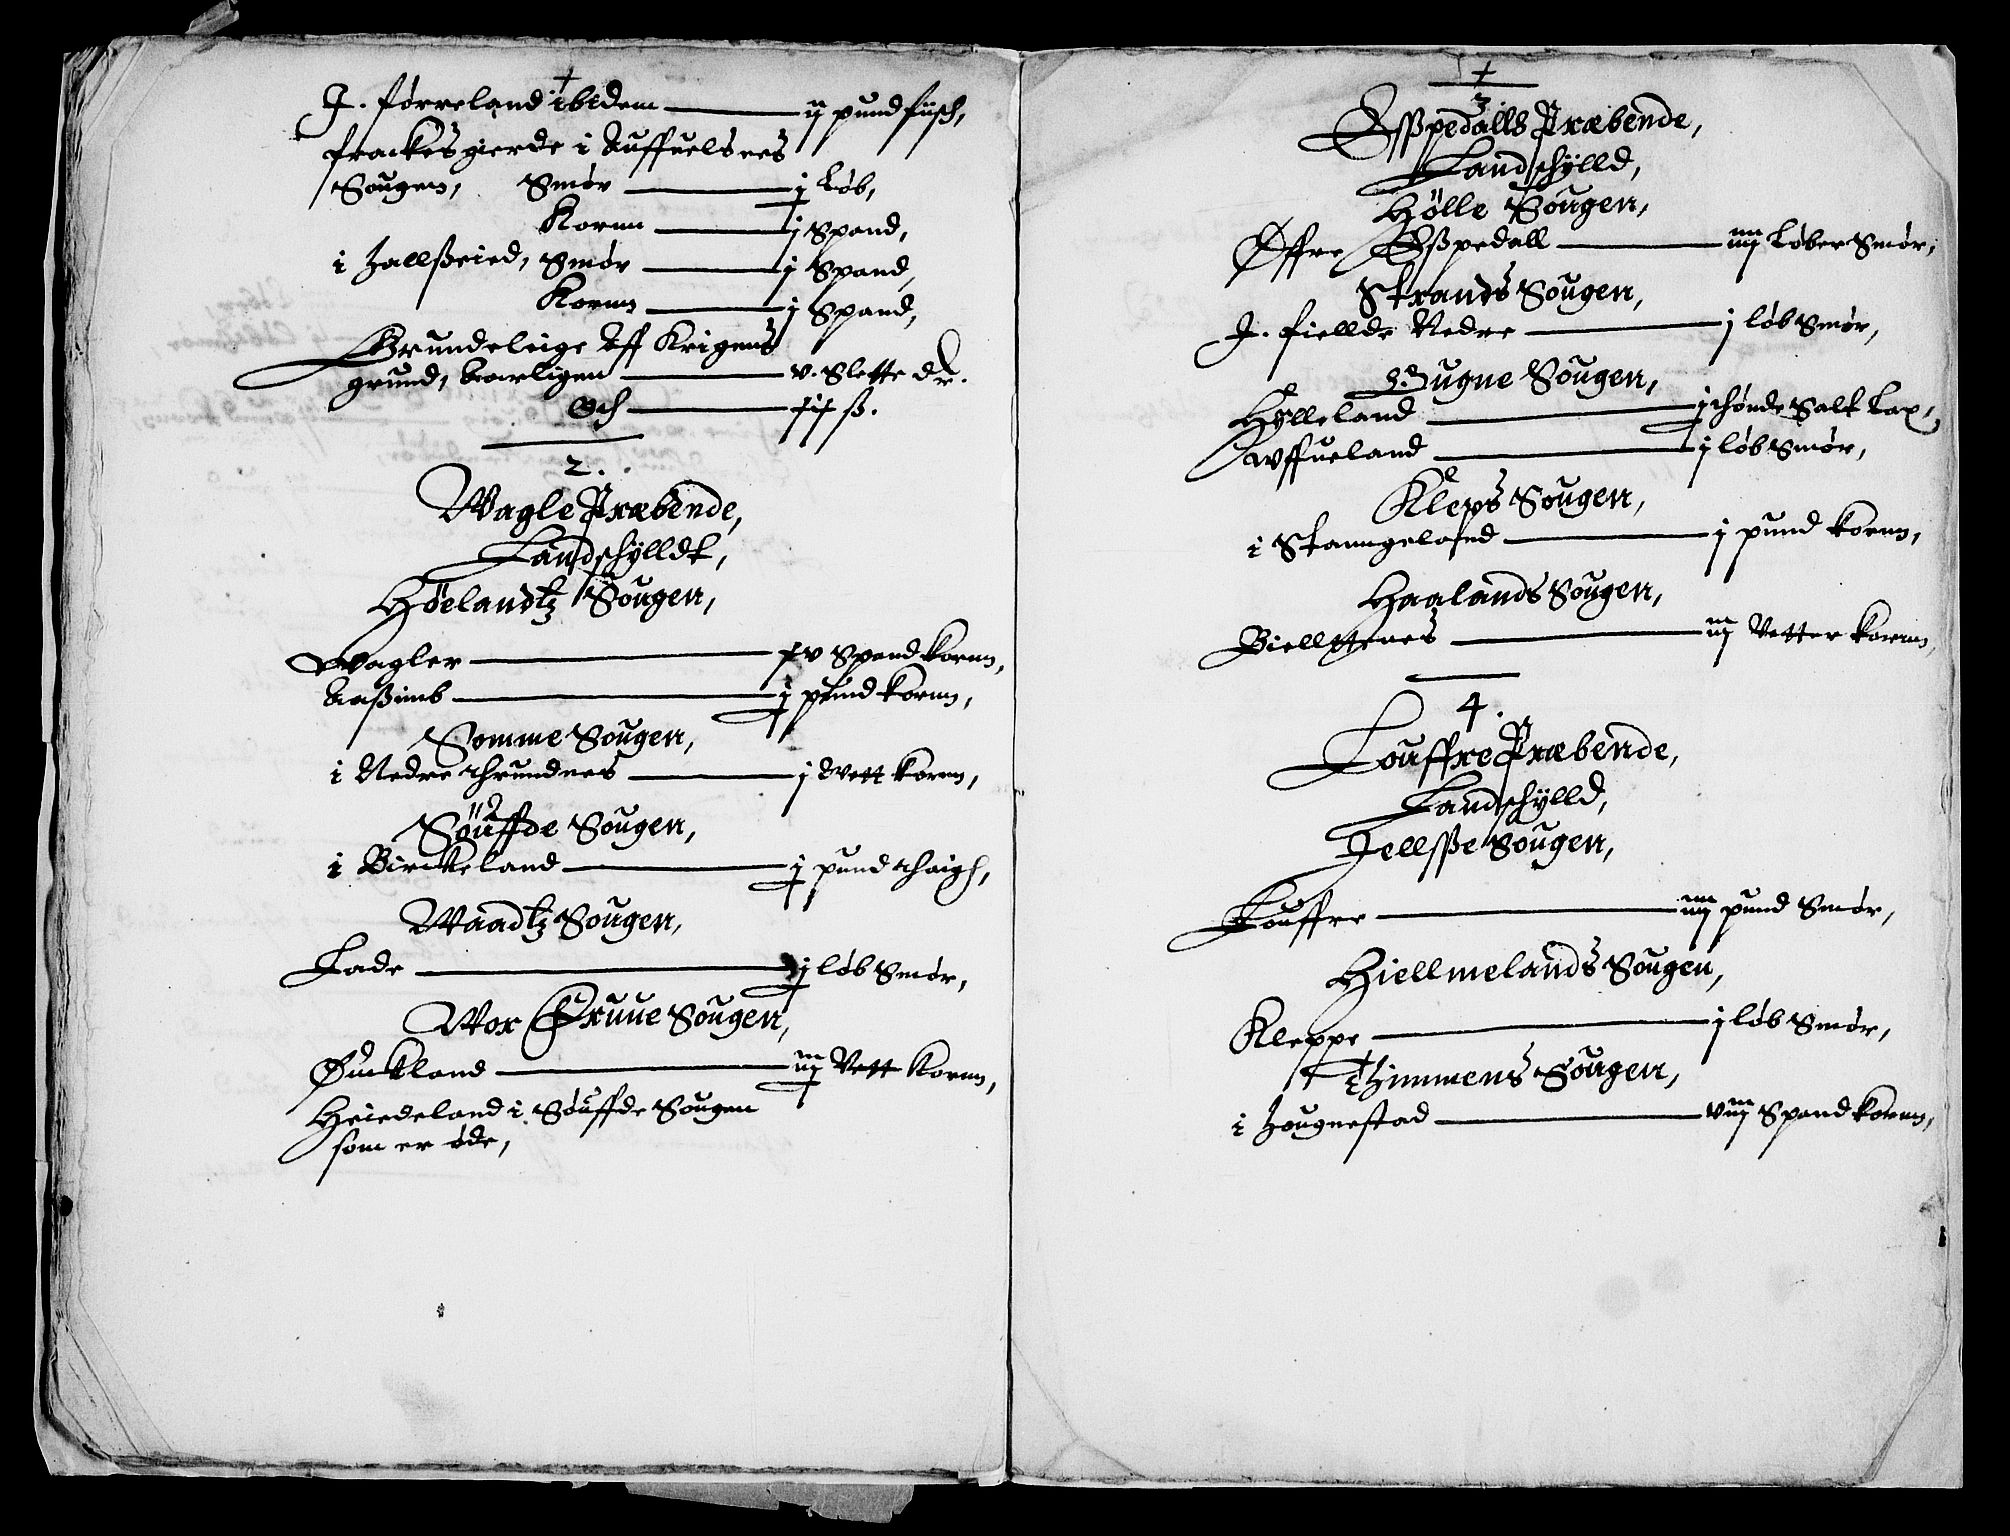 J. førreland ibidem — ij pund fiisch,
frackes gierde i Auffuelsnes
Sougen, Smør — j Løb,
Kornn — j Spand,
i Jallsseied, Smør — j Spand,
Kornn — j Spand,
Grundeleige Aff Krigens
grund, baarligen — v. Slette dr.
Och — ß.
2.
Wagle Præbende,
Landschylldt,
Höelandtz Sougen,
Wagler — xv Spand Kornn,
Aassimb — j pund Kornn,
Somme Sougen,
i Nedre Thrundnes — j Wett Kornn,
Söuffde Sougen,
i Birckeland — j pund Thaigh,
Waadtz Sougen,
Lade — j løb Smør,
Wor Fruue Sougen,
Øuckland — iij Vett Kornn,
Heiedeland i Søuffde Sougen
som er øde,
3.
Esspedalls Præbende,
Landschylld,
Hölle Sougen,
Øffre Esspedall — iiij Løber Smør,
Strands Sougen,
J. fiellde Nedre — j løb Smør,
Gougne Sougen,
Hylleland — j thønde Salt Lax,
Awffueland — j løb Smør,
Kleps Sougen,
i Stanngeland — j pund Kornn,
Haalands Sougen,
Biellttenes — iij Vetter Kornn,
4.
Louffre Præbende,
Landschylld,
Jellsse Sougen,
Louffre — iiij pund Smør,
Hiellmelands Sougen,
Kleppe — j løb Smør,
Thimmens Sougen,
i Hougnestad — viij Spand Kornn,